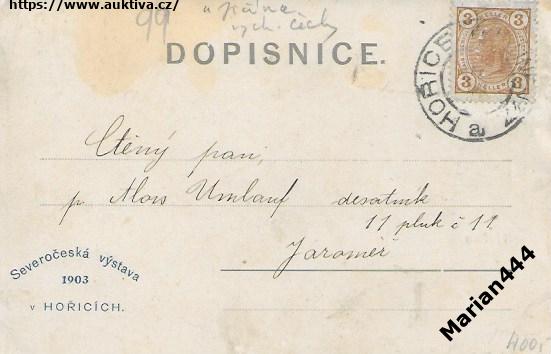 https://www.auktiva.cz/
99
vých. Čechy
DOPISNICE.
3 3
3 3
HOŘICE
a
Ctěný pan,
p. Alois Umlauf desátník
11 pluk č 11
Jaroměř
Severočeská výstava
1903
v HOŘICÍCH.
Marian444
400,